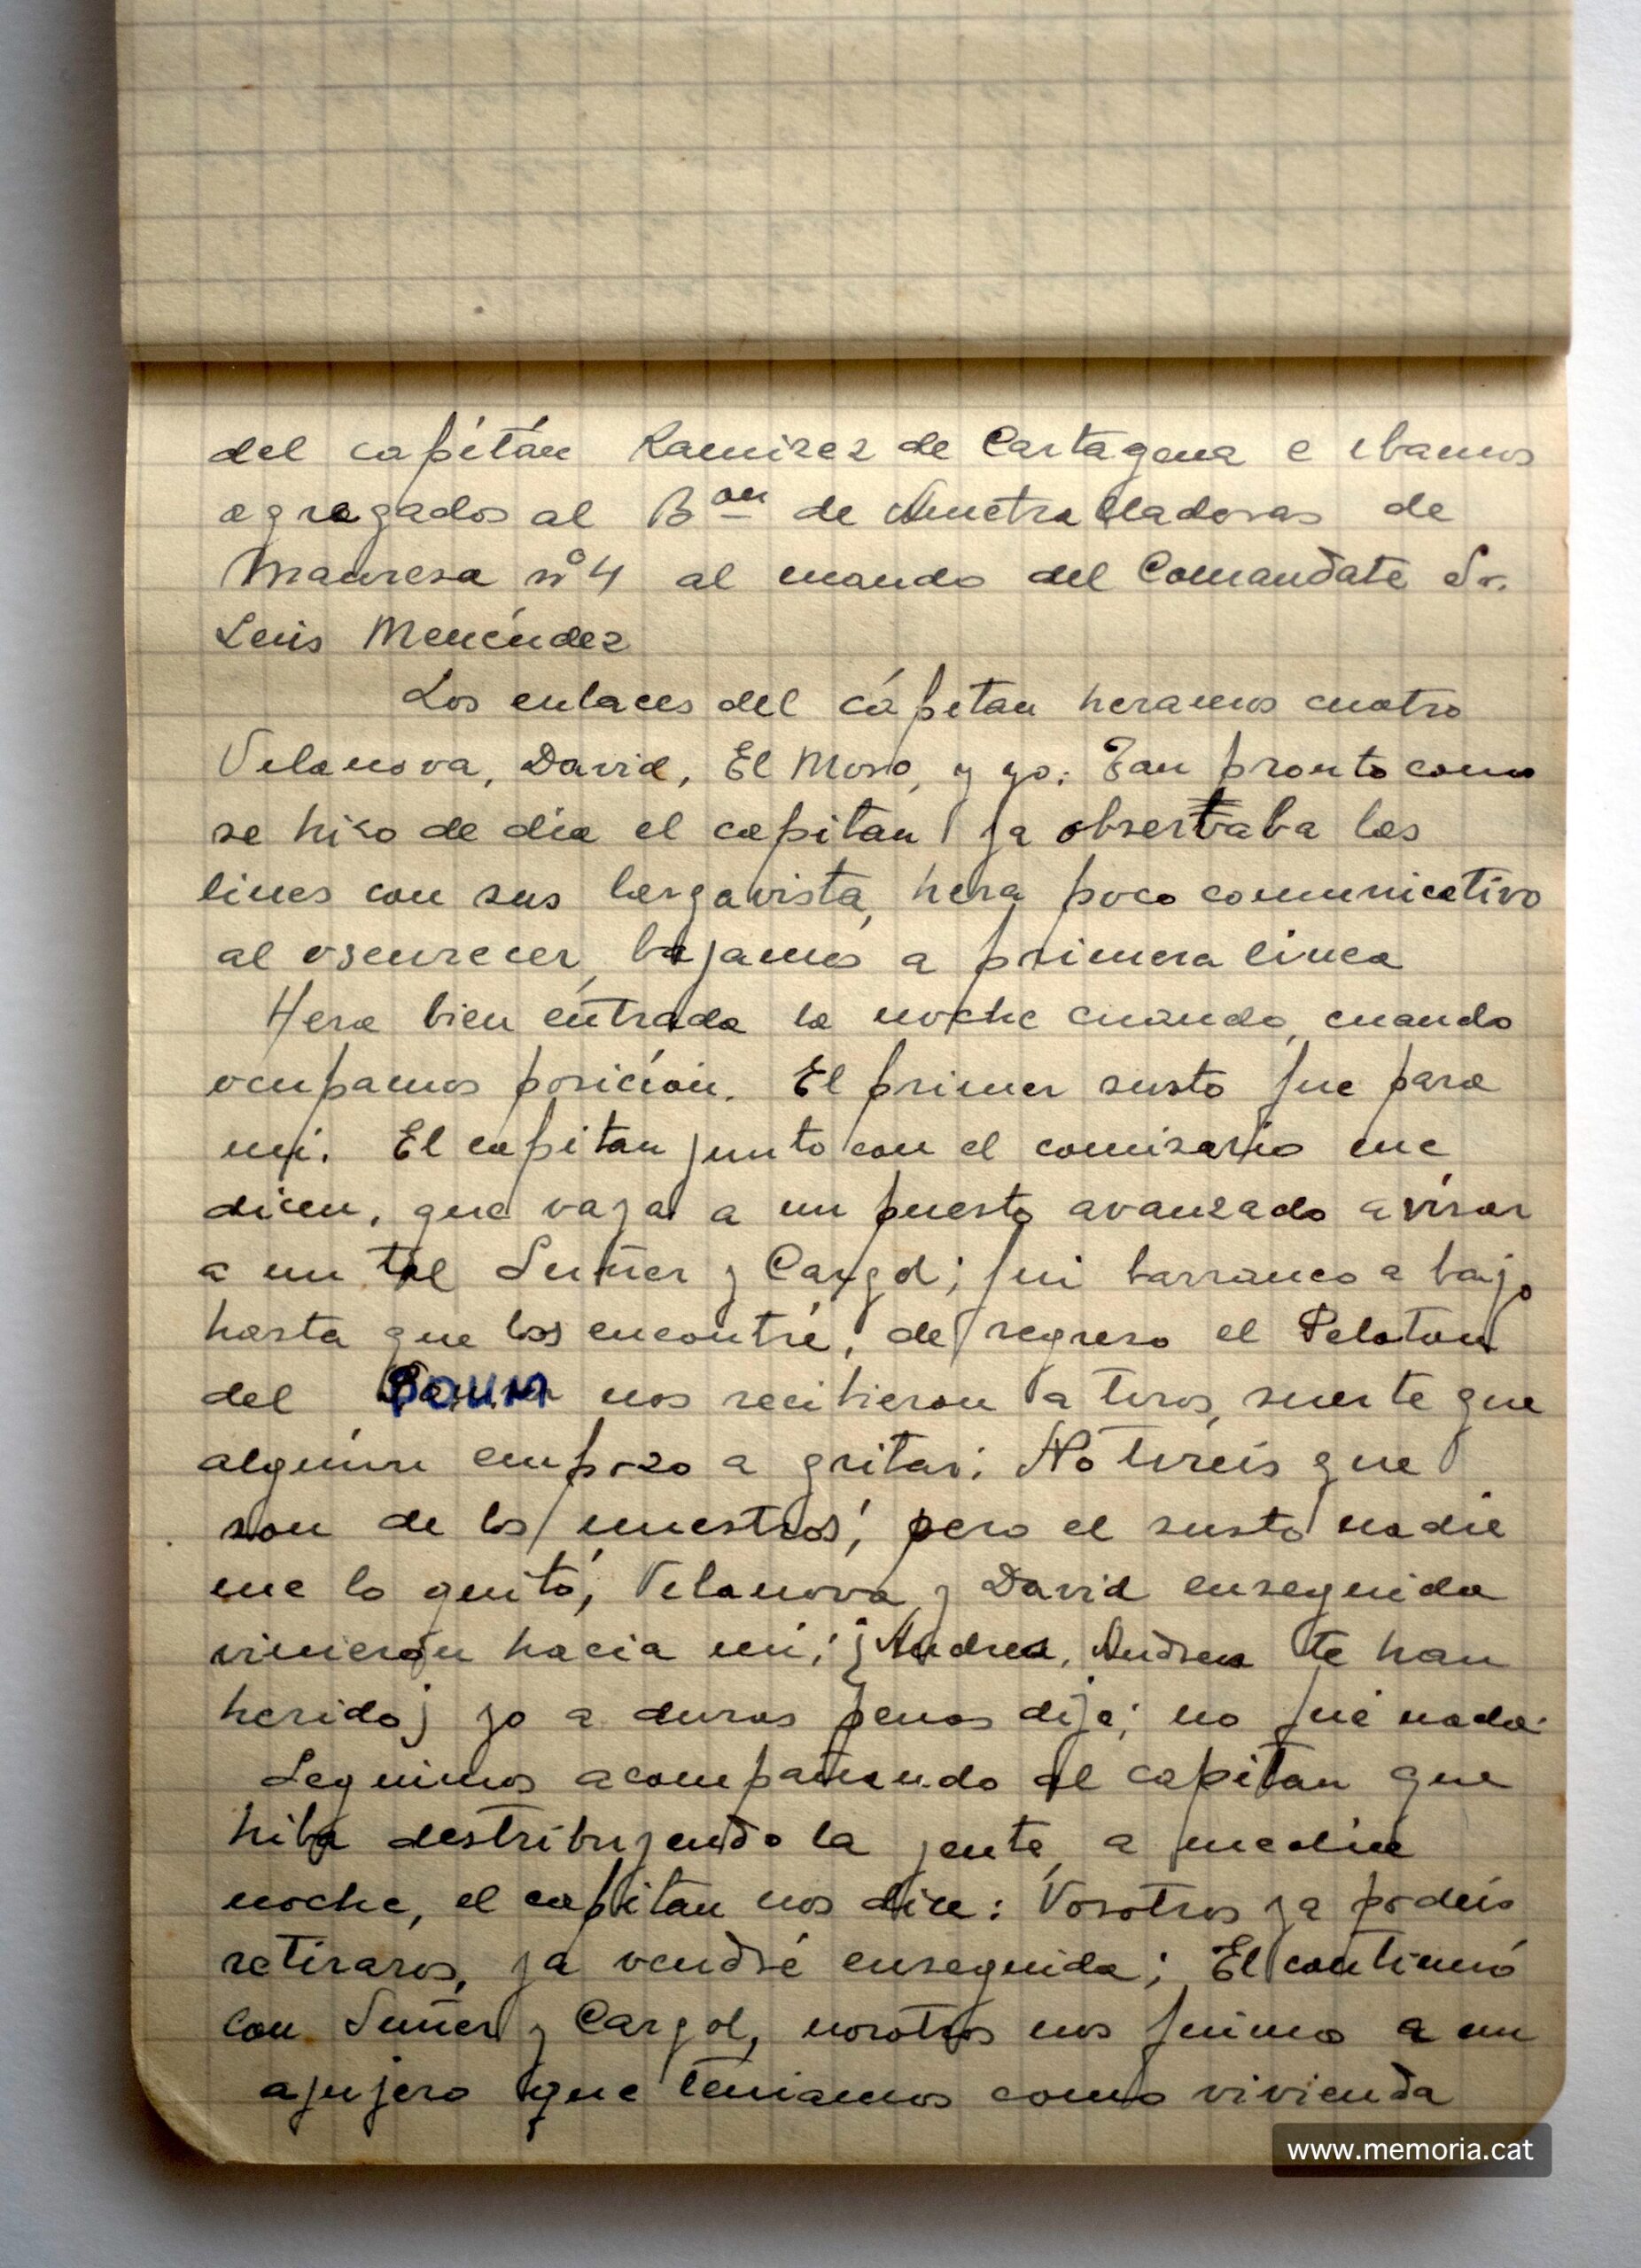 del capítán Ramirez de Cartagena e ibamos
agregados al Bon de Ametralladoras de
Manresa nº 4 al mando del Comandate Sr.
Luis Menéndez
Los enlaces del cápitan heramos cuatro
Vilanova, David, El Moso, y yo. Tan pronto como
se hizo de día el capitan ya observaba las
lines con sus largavista, hera poco comunicativo
al oscurecer, bajamos a primera linea
Hera bien entrada la noche cuando, cuando
ocupamos posición. El primer susto fue para
mi. El capitan junto con el comisario me
dicen, que vaya a un puesto avanzado avisar
a un tal Suñer y Cargol; fui barranco a bajo
hasta que los encontré, de regreso el Peloton
del POUM nos recibieron a tiros, suerte que
alguien empezo a gritar: No tireís que
son de los nuestros, pero el susto nadie
me lo quitó; Vilanova y David enseguida
vinieron hacia mi; ¡Andreu, Andreu te han
herido¡ yo a duras penas dije; no fué nada.
Seguimos acompañando al capitan que
hiba destribuyendo la jente, a media
noche, el capitan nos dice: Vosotros ya podeis
retiraros, ya vendré enseguida; El continuó
con Suñer y Cargol, nosotros nos fuimos a un
ajujero que teniamos como vivienda
www.memoria.cat